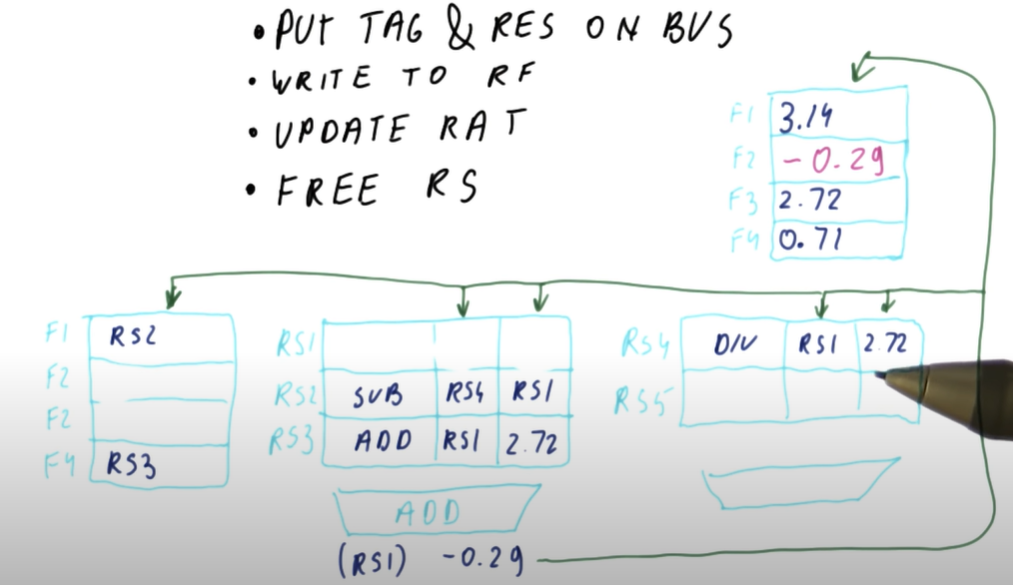 • PUT TAG & RES ON BUS
• WRITE TO RF
• UPDATE RAT
• FREE RS
F1 3.14
F2 - 0.29
F3 2.72
F4 0.71
F1 RS2
F2
F2
F4 RS3
RS1
RS2 SUB RS4 RS1
RS3 ADD RS1 2.72
ADD
(RS1) -0.29
RS4 DIV RS1 2.72
RS5